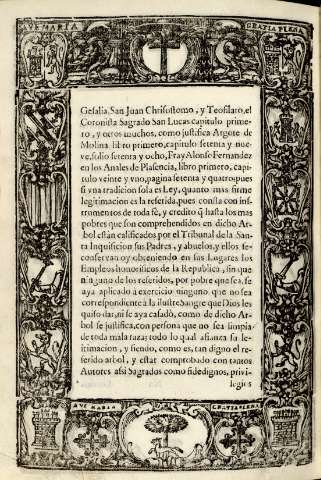 AVE MARIA
GRATIA PLENA
Gesalia, San Juan Chrisostomo, y Teofilato, el
Coronista Sagrado San Lucas capitulo prime-
ro, y otros muchos, como justifica Argote de
Molina libro primero, capitulo setenta y nue-
ve, folio setenta y ocho, Fray Alonso Fernandez
en los Anales de Plasencia, libro primero, capi-
tulo veinte y vno, pagina setenta y quatro pues
si vna tradicion sola es Ley, quanto mas firme
legitimacion es la referida, pues consta con ins-
trumentos de toda fè, y credito q̃ hasta los mas
pobres que son comprehendidos en dicho Ar-
bol estàn calificados por el Tribunal de la San-
ta Inquisicion sus Padres, y abuelos, y ellos se
conservan oy obteniendo en sus Lugares los
Empleos honorificos de la Republica, sin que
ninguno de los referidos, por pobre que sea, se
aya aplicado à exercicio ninguno que no sea
correspondiente à la ilustre Sangre que Dios les
quiso dar, ni se aya casado, como de dicho Ar-
bol se justifica, con persona que no sea limpia
de toda mala raza; todo lo qual afianza su le-
gitimacion, y siendo, como es, tan digno el re-
ferido arbol, y estàr comprobado con tantos
Autores assi Sagrados como fidedignos, privi-
legios
AVE MARIA
GRATIA PLENA